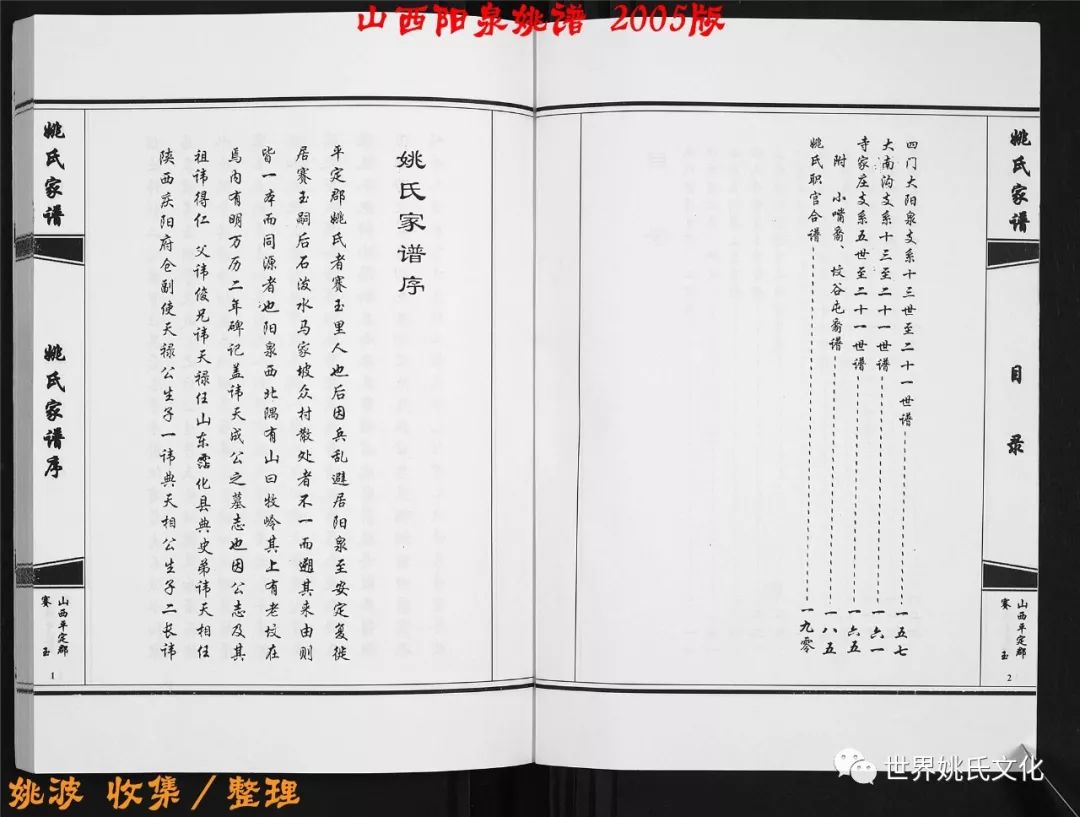 山西阳泉姚谱 2005版
姚氏家谱
目录
山西平定郡
赛玉
2
四门大阳泉支系十三世至二十一世谱 一五七
大南沟支系十三至二十一世谱 一六一
寺家庄支系五世至二十一世谱 一六五
附 小嘴裔、坟谷屯裔谱 一八五
姚氏职官合谱 一九零
姚氏家谱序
平定郡姚氏者赛玉里人也后因兵乱避居阳泉至安定复徙
居赛玉嗣后石泼水马家坡众村散处者不一而遡其来由则
皆一本而同源者也阳泉西北隅有山曰牧岭其上有老坟在
焉内有明万历二年碑记盖讳天成公之墓志也因公志及其
祖讳得仁 父讳俊兄讳天禄任山东霑化县典史弟讳天相任
陕西庆阳府仓副使天禄公生子一讳典天相公生子二长讳
姚氏家谱
姚氏家谱序
山西平定郡
赛玉
1
世界姚氏文化
姚波 收集/整理